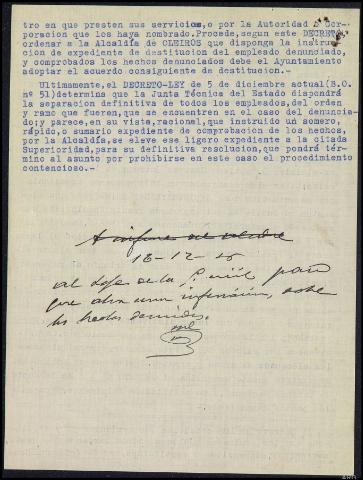 tro en que presten sus servicios, o por la Autoridad o Cor-
poracion que los haya nombrado. Procede, segun este DECRETO
ordenar a la Alcaldía de OLEIROS que disponga la instruc-
cion de expediente de destitucion del empleado denunciado,
y comprobados los hechos denunciados debe el Ayuntamiento
adoptar el acuerdo consiguiente de destitucion.-
Ultimamente, el DECRETO-LEY de 5 de diciembre actual(B.O.
nº 51)determina que la Junta Técnica del Estado dispondrá
la separación definitiva de todos los empleados, del orden
y ramo que fueren, que se encuentren en el caso del denuncia-
do; y parece, en su vista, racional, que instruido un somero,
rápido, o sumario expediente de comprobacion de los hechos,
por la Alcaldía, se eleve ese ligero expediente a la citada
Superioridad, para su definitiva resolucion, que pondrá tér-
mino al asunto por prohibirse en este caso el procedimiento
contencioso.-
A
18-12-36
al Jefe de la para
que abra una información, sobre
los hechos